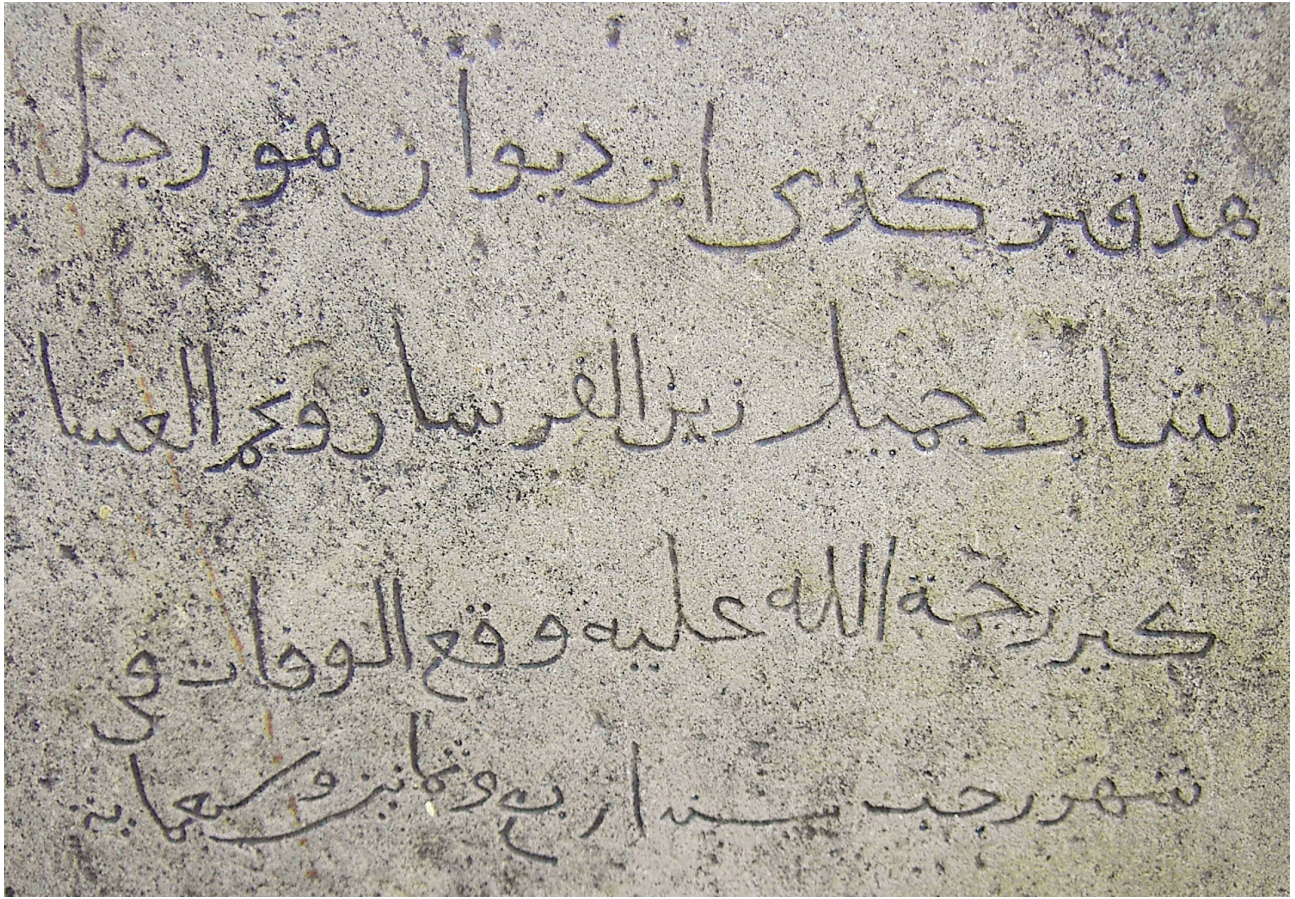 هذ قبر كدى ابن ديوان هو رجل
شاب جميلا زين الفرسان ونجم العسا
كير رحمة الله عليه وقع الوفات فى
شهر رجب سنه اربع وثمانين وسبعماية